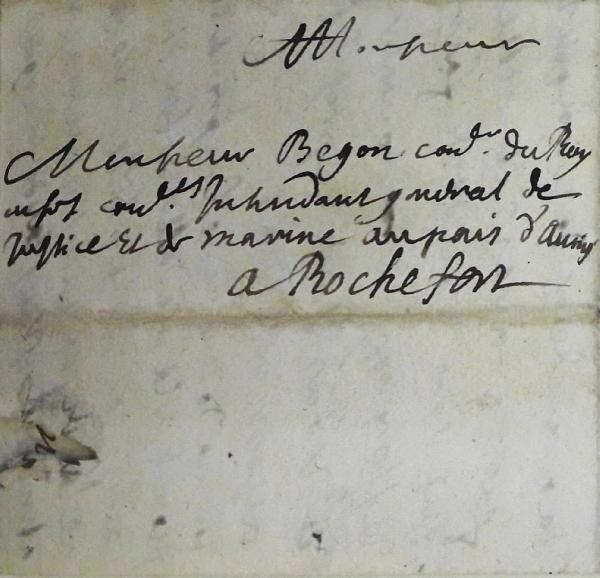 Monsieur
Monsieur Begon con.er du Roy
en ses con.els Intendant general de
Justice et de marine au pais d'Aunis
a Rochefort